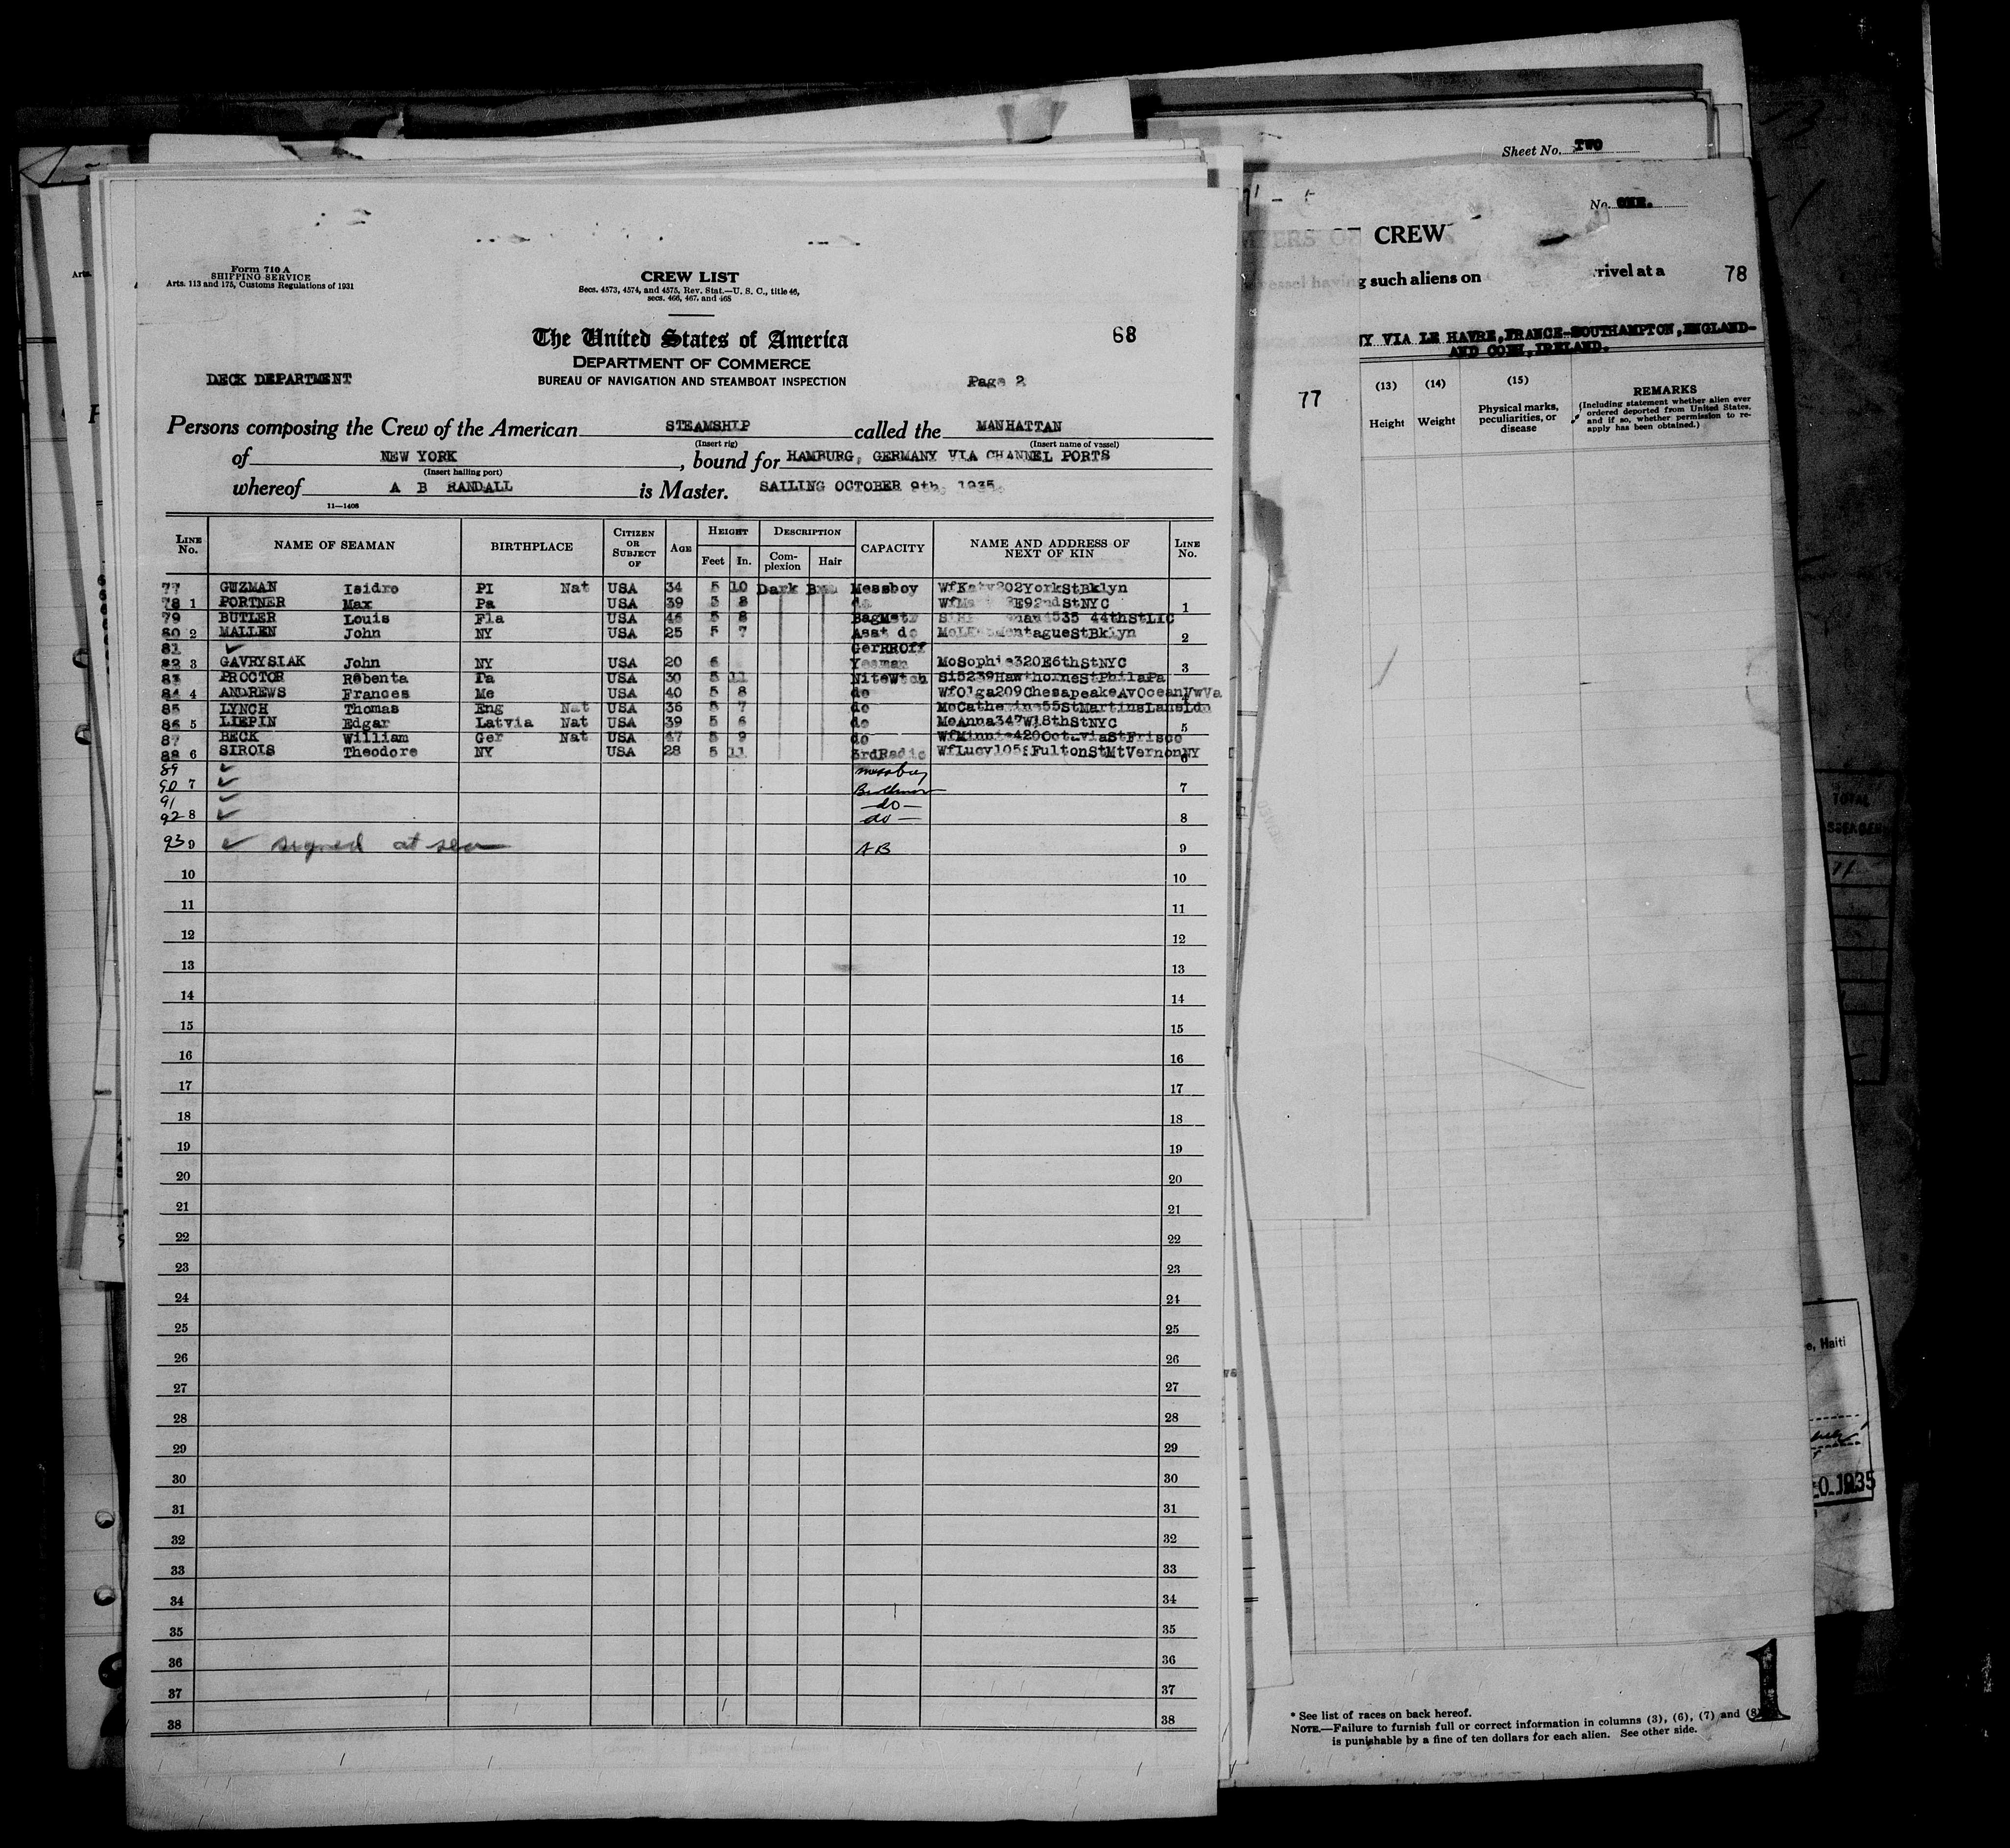 Form 710 A
SHIPPING SERVICE
Arts. 113 and 175, Customs Regulations of 1931
CREW LIST
Secs. 4573, 4574, and 4575, Rev. Stat.—U. S. C., title 46,
secs. 466, 467, and 468
The United States of America
68
DEPARTMENT OF COMMERCE
DECK DEPARTMENT
BUREAU OF NAVIGATION AND STEAMBOAT INSPECTION
Page 2
Persons composing the Crew of the American STEAMSHIP called the MANHATTAN
(Insert rig) (Insert name of vessel)
of NEW YORK, bound for HAMBURG, GERMANY VIA CHANNEL PORTS
(Insert hailing port)
whereof A B RANDALL is Master. SAILING OCTOBER 9th, 1935
11—1406
LINE No. NAME OF SEAMAN BIRTHPLACE CITIZEN OR SUBJECT OF AGE HEIGHT Feet In. DESCRIPTION Complexion Hair CAPACITY NAME AND ADDRESS OF NEXT OF KIN LINE No.
77 GUZMAN Isidro PI Nat USA 34 5 10 Dark Messboy 202YorkStBklyn
78 1 PORTNER Max Pa USA 39 5 8 do E92ndStNYC 1
79 BUTLER Louis Fla USA 5 8 BagMstr 4535 44thStLIC
80 2 MALLEN John NY USA 25 5 7 Asst do MontagueStBklyn 2
81 ✓ GerRROff
82 3 GAVRYSIAK John NY USA 20 6 Yeoman MoSophie320E6thStNYC 3
83 PROCTOR Robenta Pa USA 30 5 11 NiteWtch Si5239HawthorneStPhilaPa
84 4 ANDREWS Frances Me USA 40 5 8 do WfOlga209ChesapeakeAvOceanVwVa
85 LYNCH Thomas Eng Nat USA 36 5 7 do MoCatherine55StMartinsLansLdn
86 5 LIEPIN Edgar Latvia Nat USA 39 5 6 do MoAnna347W18thStNYC 5
87 BECK William Ger Nat USA 47 5 9 do WfMinnie420OctaviaStFrisco
88 6 SIROIS Theodore NY USA 28 5 11 3rdRadio WfLucy FultonStMtVernonNY 6
89 ✓ messboy
90 7 ✓ 7
91 ✓ — do —
92 8 ✓ do — 8
93 9 ✓ signed at sea AB 9
10 10
11 11
12 12
13 13
14 14
15 15
16 16
17 17
18 18
19 19
20 20
21 21
22 22
23 23
24 24
25 25
26 26
27 27
28 28
29 29
30 30
31 31
32 32
33 33
34 34
35 35
36 36
37 37
38 38
Sheet No. TWO
No. ONE.
CREW
g such aliens on
rrivel at a
78
Y VIA LE HAVRE, FRANCE-SOUTHAMPTON, ENGLAND-
AND COBH, IRELAND.
77
(13) (14) (15)
Height Weight Physical marks, peculiarities, or disease
REMARKS
(Including statement whether alien ever
ordered deported from United States,
and if so, whether permission to re-
apply has been obtained.)
TOTAL
e, Haiti
0 1935
1
* See list of races on back hereof.
NOTE.—Failure to furnish full or correct information in columns (3), (6), (7) and (8)
is punishable by a fine of ten dollars for each alien. See other side.